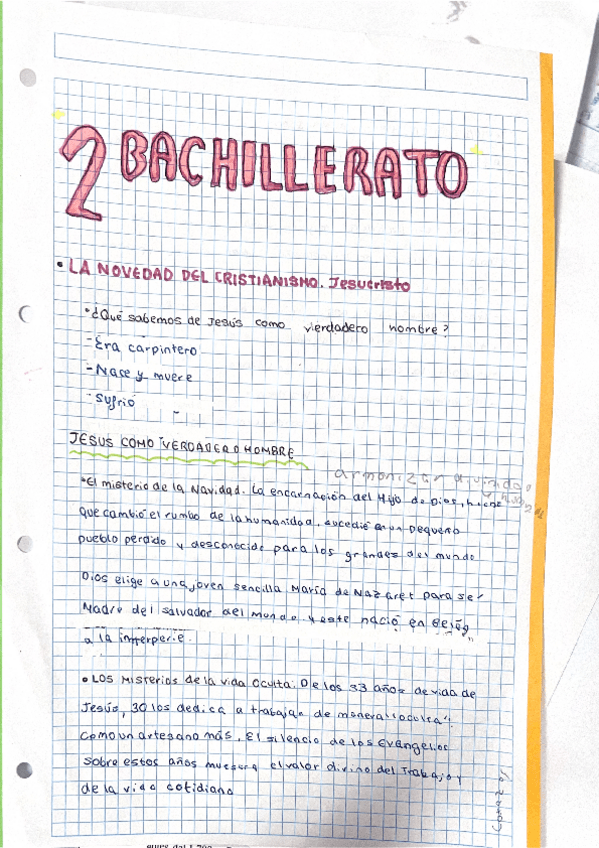 2 BACHILLERATO
• LA NOVEDAD DEL CRISTIANISMO. Jesucristo
• ¿Qué sabemos de Jesús como verdadero hombre?
- Era carpintero
- Nace y muere
- Sufrió
JESUS COMO VERDADERO HOMBRE
armonizar divinidad
y humanidad
• El misterio de la Navidad. La encarnación del Hijo de Dios, hecho
que cambió el rumbo de la humanidad, sucedió en un pequeño
pueblo perdido y desconocido para los grandes del mundo
Dios elige a una joven sencilla María de Nazaret para ser
Madre del salvador del Mundo. Y este nació en Belén,
a la interperie.
• Los Misterios de la vida oculta. De los 33 años de vida de
Jesús, 30 los dedica a trabajar de manera "oculta".
Como un artesano más, El silencio de los Evangelios
sobre estos años muestra el valor divino del Trabajo y
de la vida cotidiana